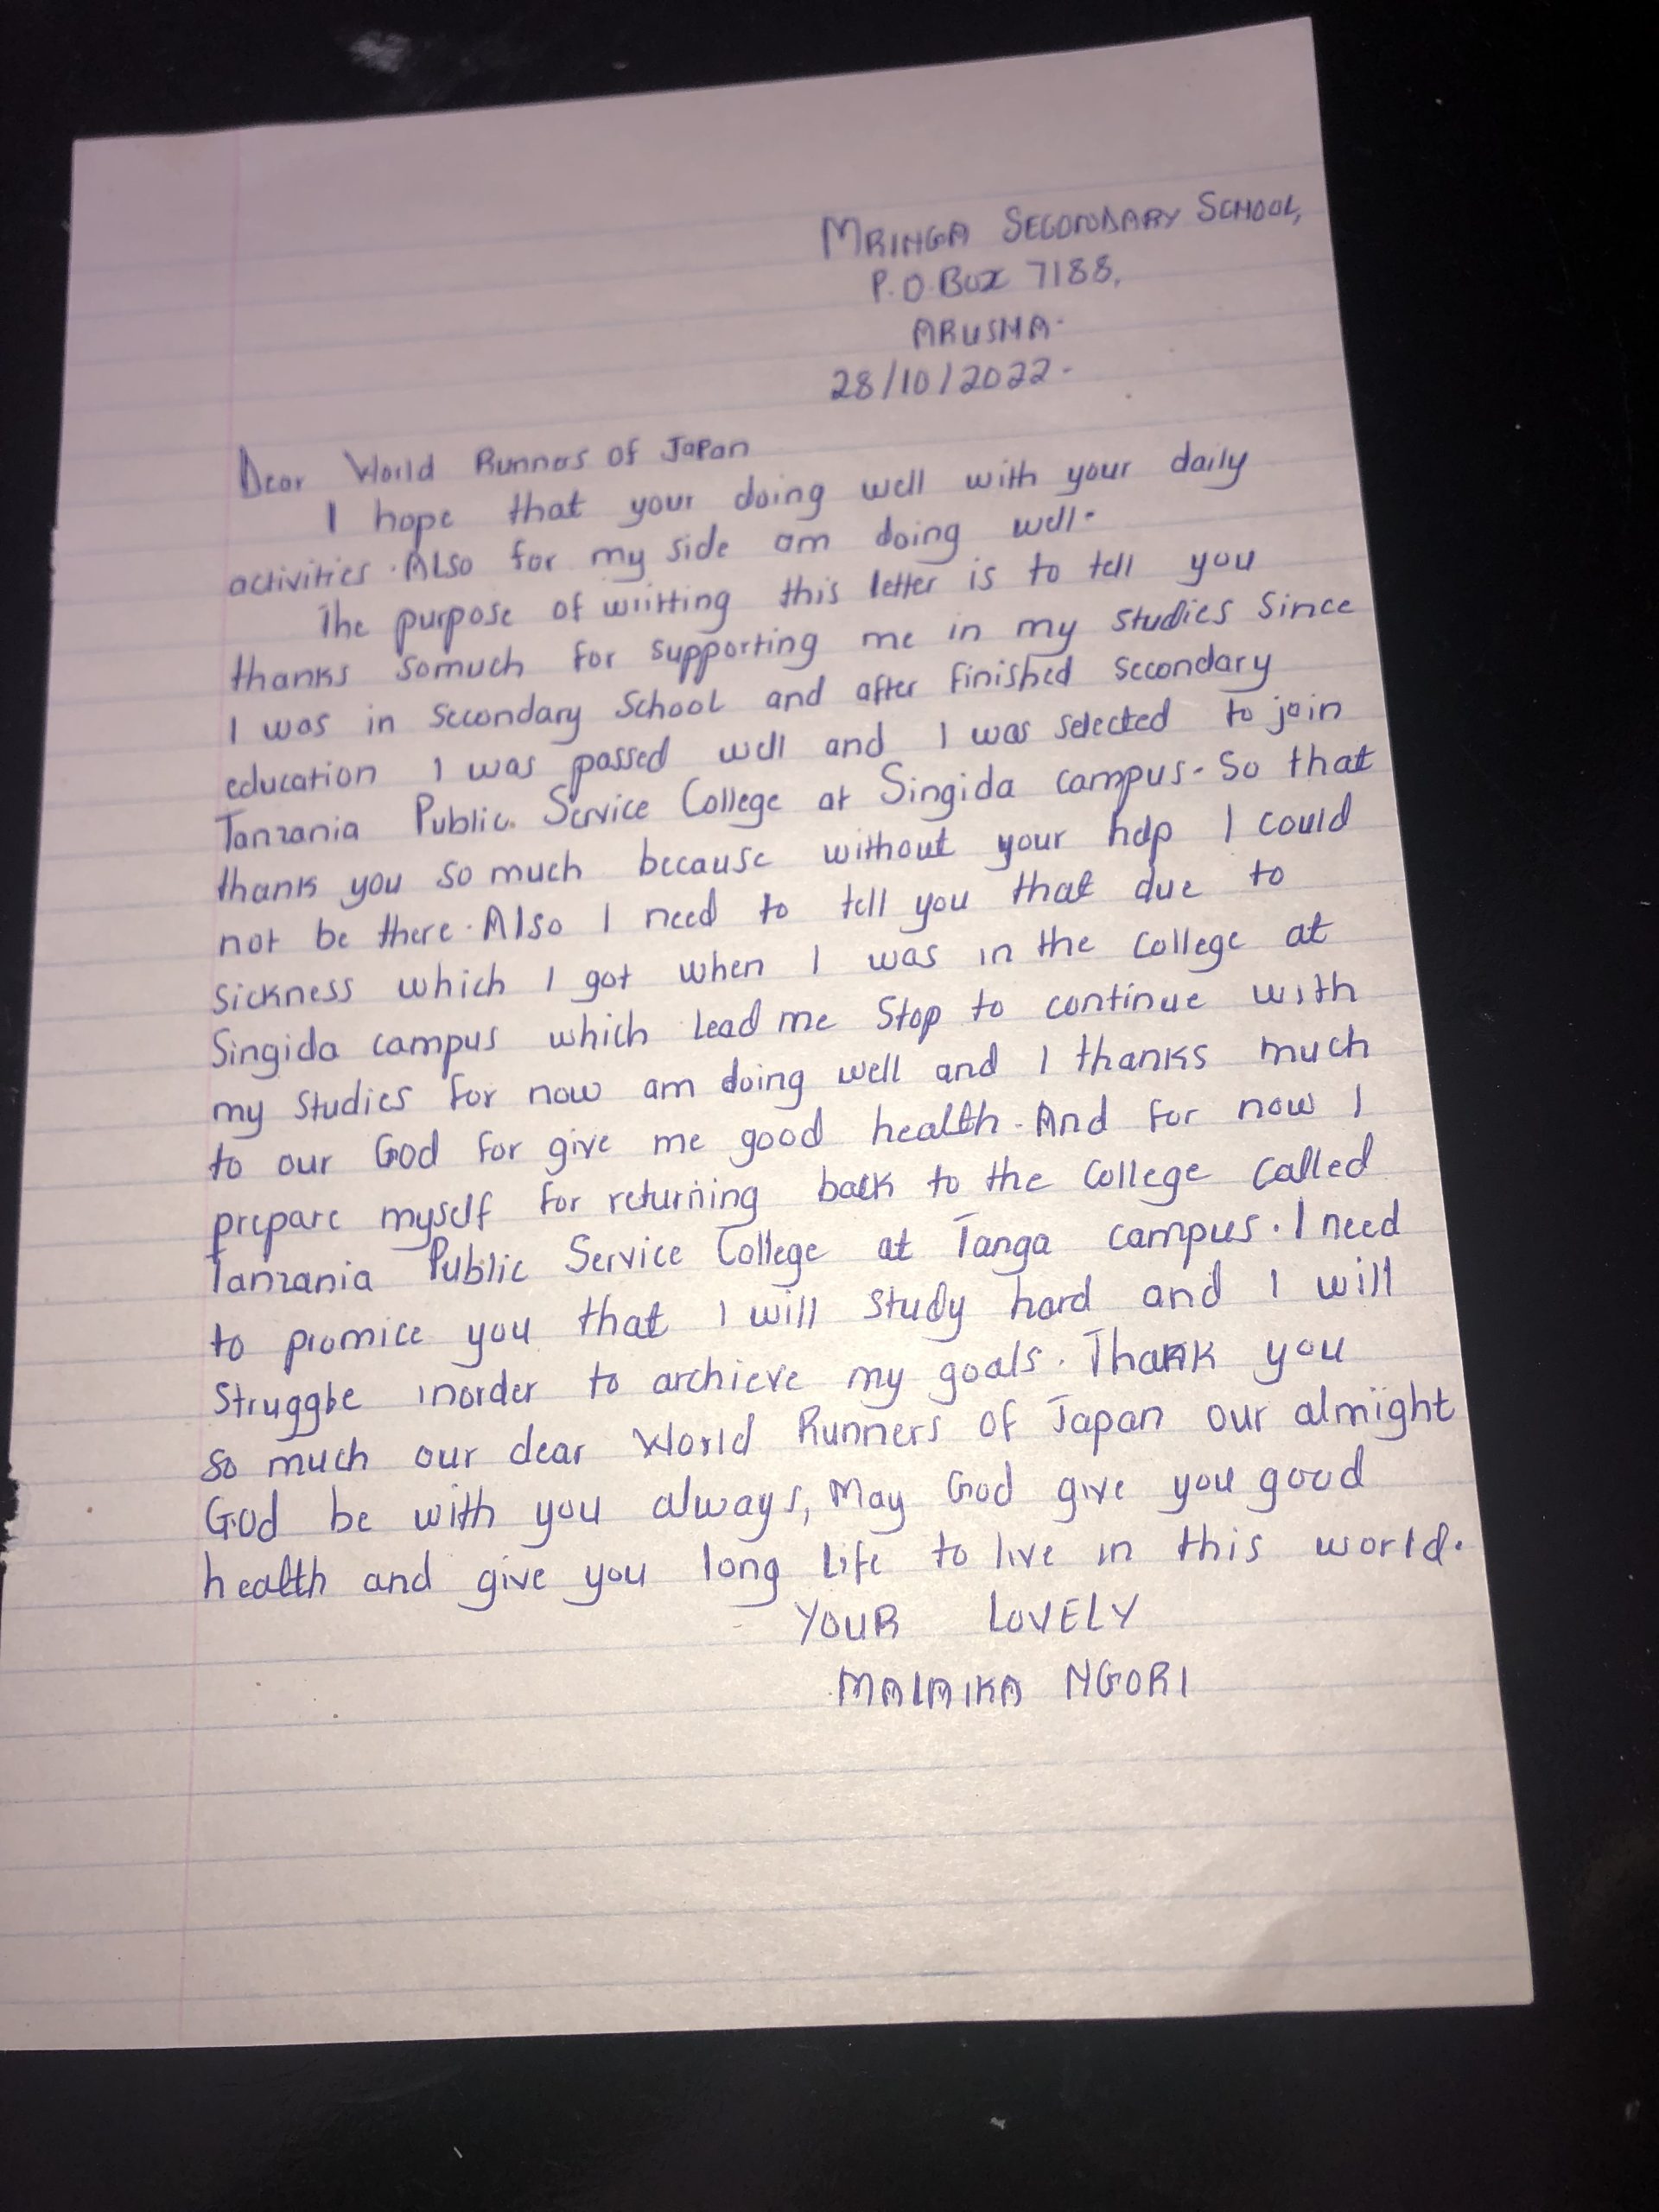 MRINGA SECONDARY SCHOOL,
P.O.Box 7188,
ARUSHA.
28/10/2022.
Dear World Runners of Japan
I hope that your doing well with your daily
activities. Also for my side am doing well.
The purpose of writting this letter is to tell you
thanks somuch for supporting me in my studies since
I was in Secondary School and after finished secondary
education I was passed well and I was selected to join
Tanzania Public Service College at Singida campus. So that
thank you so much because without your help I could
not be there. Also I need to tell you that due to
sickness which I got when I was in the college at
Singida campus which lead me stop to continue with
my studies for now am doing well and I thanks much
to our God for give me good health. And for now I
prepare myself for returning back to the college called
Tanzania Public Service College at Tanga campus. I need
to promice you that I will study hard and I will
struggle inorder to archieve my goals. Thank you
so much our dear World Runners of Japan our almight
God be with you always, May God give you good
health and give you long life to live in this world.
YOUR LOVELY
MALAIKA NGORI